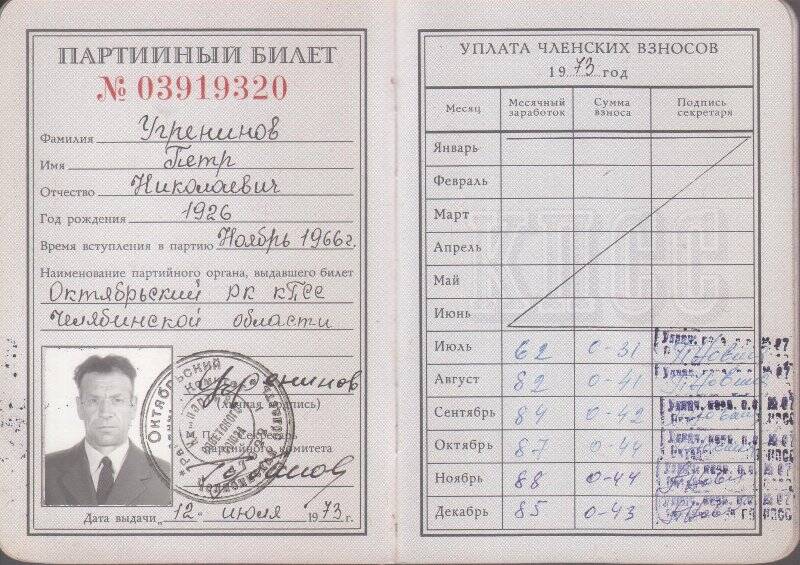 ПАРТИЙНЫЙ БИЛЕТ
№ 03919320
Фамилия Угренинов
Имя Петр
Отчество Николаевич
Год рождения 1926
Время вступления в партию Ноябрь 1966 г.
Наименование партийного органа, выдавшего билет
Октябрьский РК КПСС
Челябинской области
Угренинов
(личная подпись)
Секретарь
партийного комитета
Дата выдачи „12“ июля 1973 г.
УПЛАТА ЧЛЕНСКИХ ВЗНОСОВ
1973 год
Месяц Месячный заработок Сумма взноса Подпись секретаря
Январь
Февраль
Март
Апрель
КПСС
Май
Июнь
Июль 62 0-31
Август 82 0-41
Сентябрь 84 0-42
Октябрь 87 0-44
Ноябрь 88 0-44
Декабрь 85 0-43